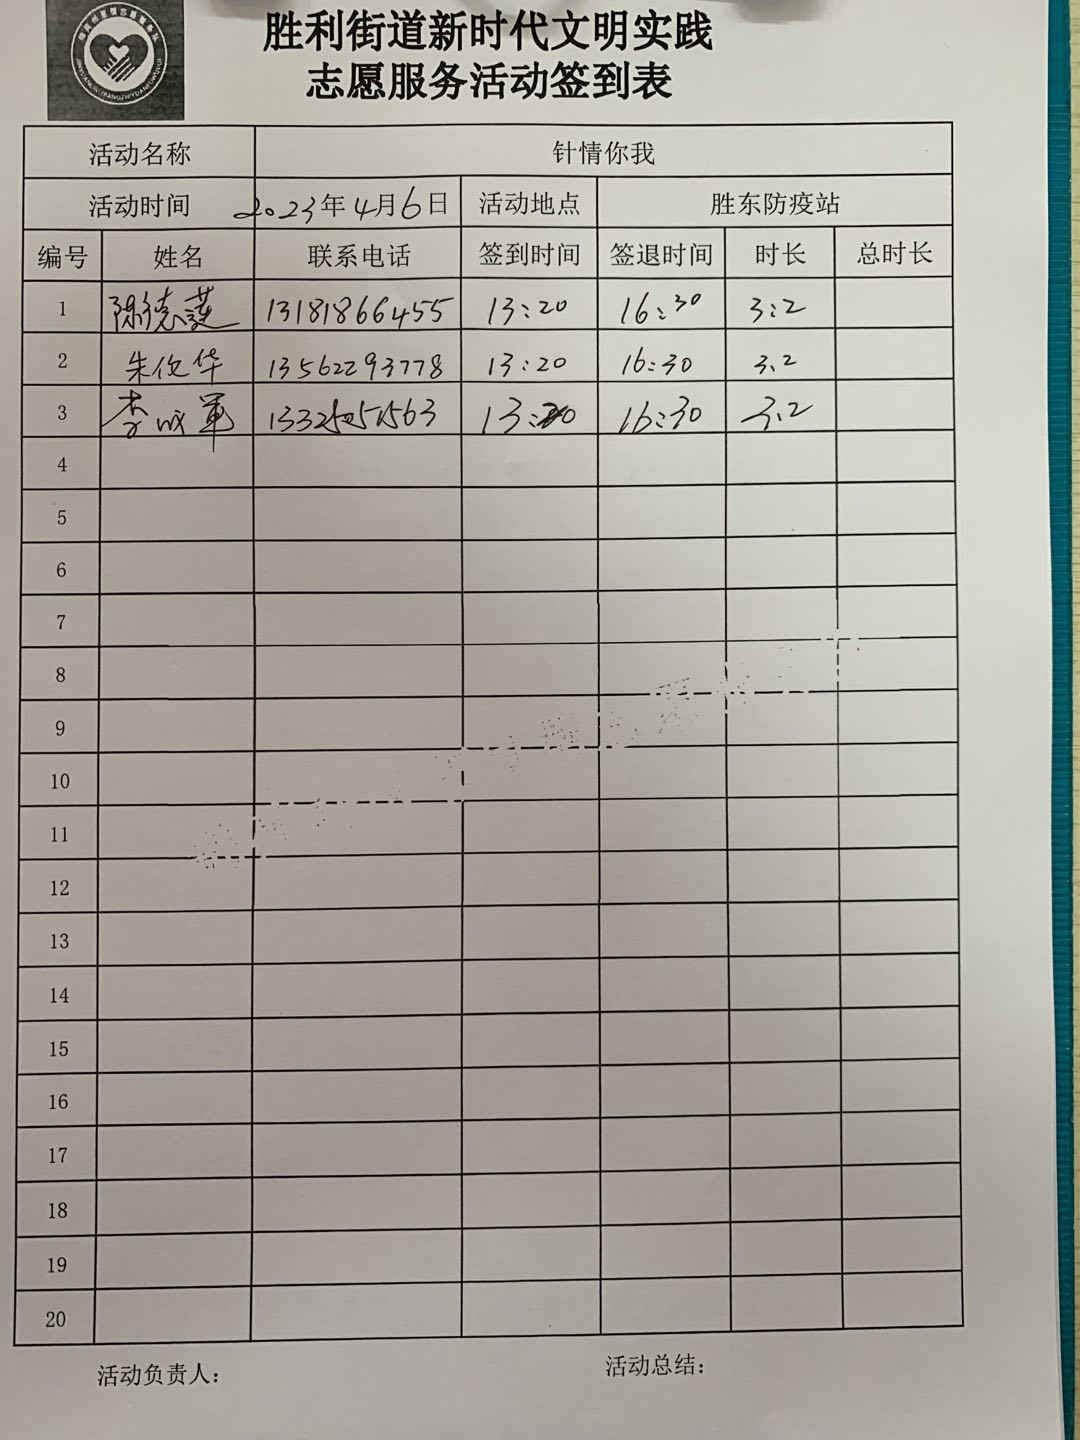 胜利街道新时代文明实践
志愿服务活动签到表
活动名称 针情你我
活动时间 2023年4月6日 活动地点 胜东防疫站
编号 姓名 联系电话 签到时间 签退时间 时长 总时长
1 陈德莲 13181866455 13:20 16:30 3:2
2 朱俊华 13562293778 13:20 16:30 3.2
3 李成军 13:20 16:30 3.2
4
5
6
7
8
9
10
11
12
13
14
15
16
17
18
19
20
活动负责人: 活动总结: